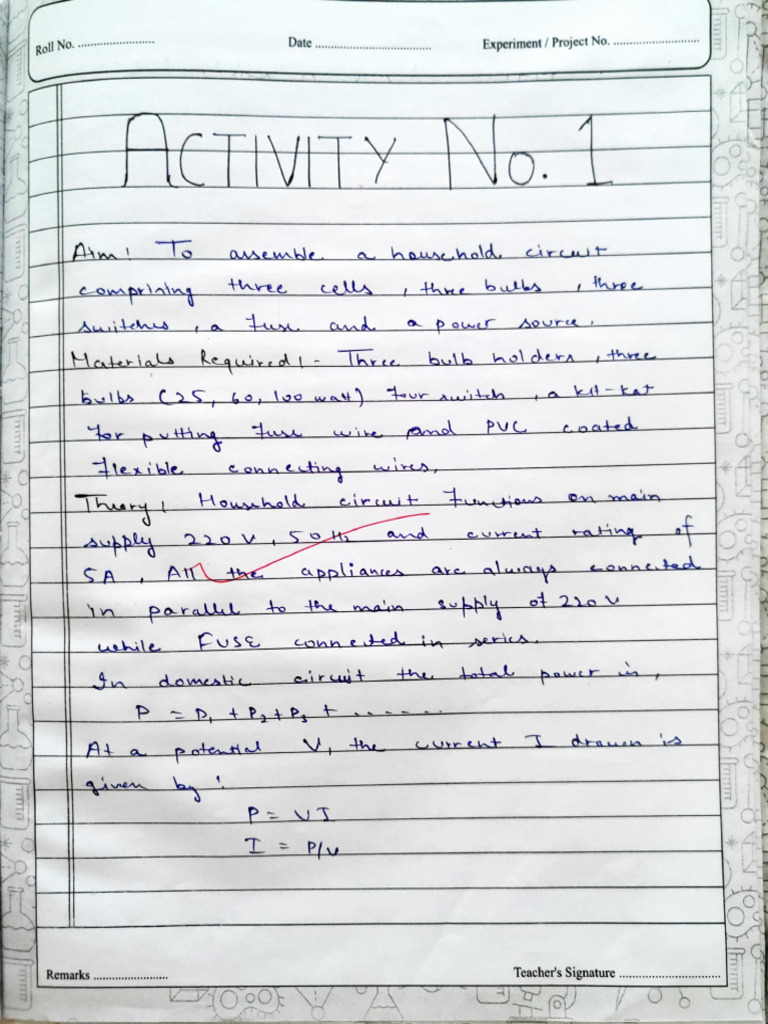 Roll No. ........................
Date ....................................
Experiment / Project No. ..........................
ACTIVITY No. 1
Aim: To assemble a household circuit
comprising three cells, three bulbs, three
switches, a fuse and a power source.
Materials Required:- Three bulb holders, three
bulbs (25, 60, 100 watt) four switch, a kit-kat
for putting fuse wire and PVC coated
flexible connecting wires.
Theory: Household circuit functions on main
supply 220 V, 50 Hz and current rating of
5A, All the appliances are always connected
in parallel to the main supply of 220 V
while FUSE connected in series.
In domestic circuit the total power is,
P = P₁ + P₂ + P₃ + .......
At a potential V, the current I drawn is
given by:
P = VI
I = P/V
Remarks .......................
Teacher's Signature ...............................